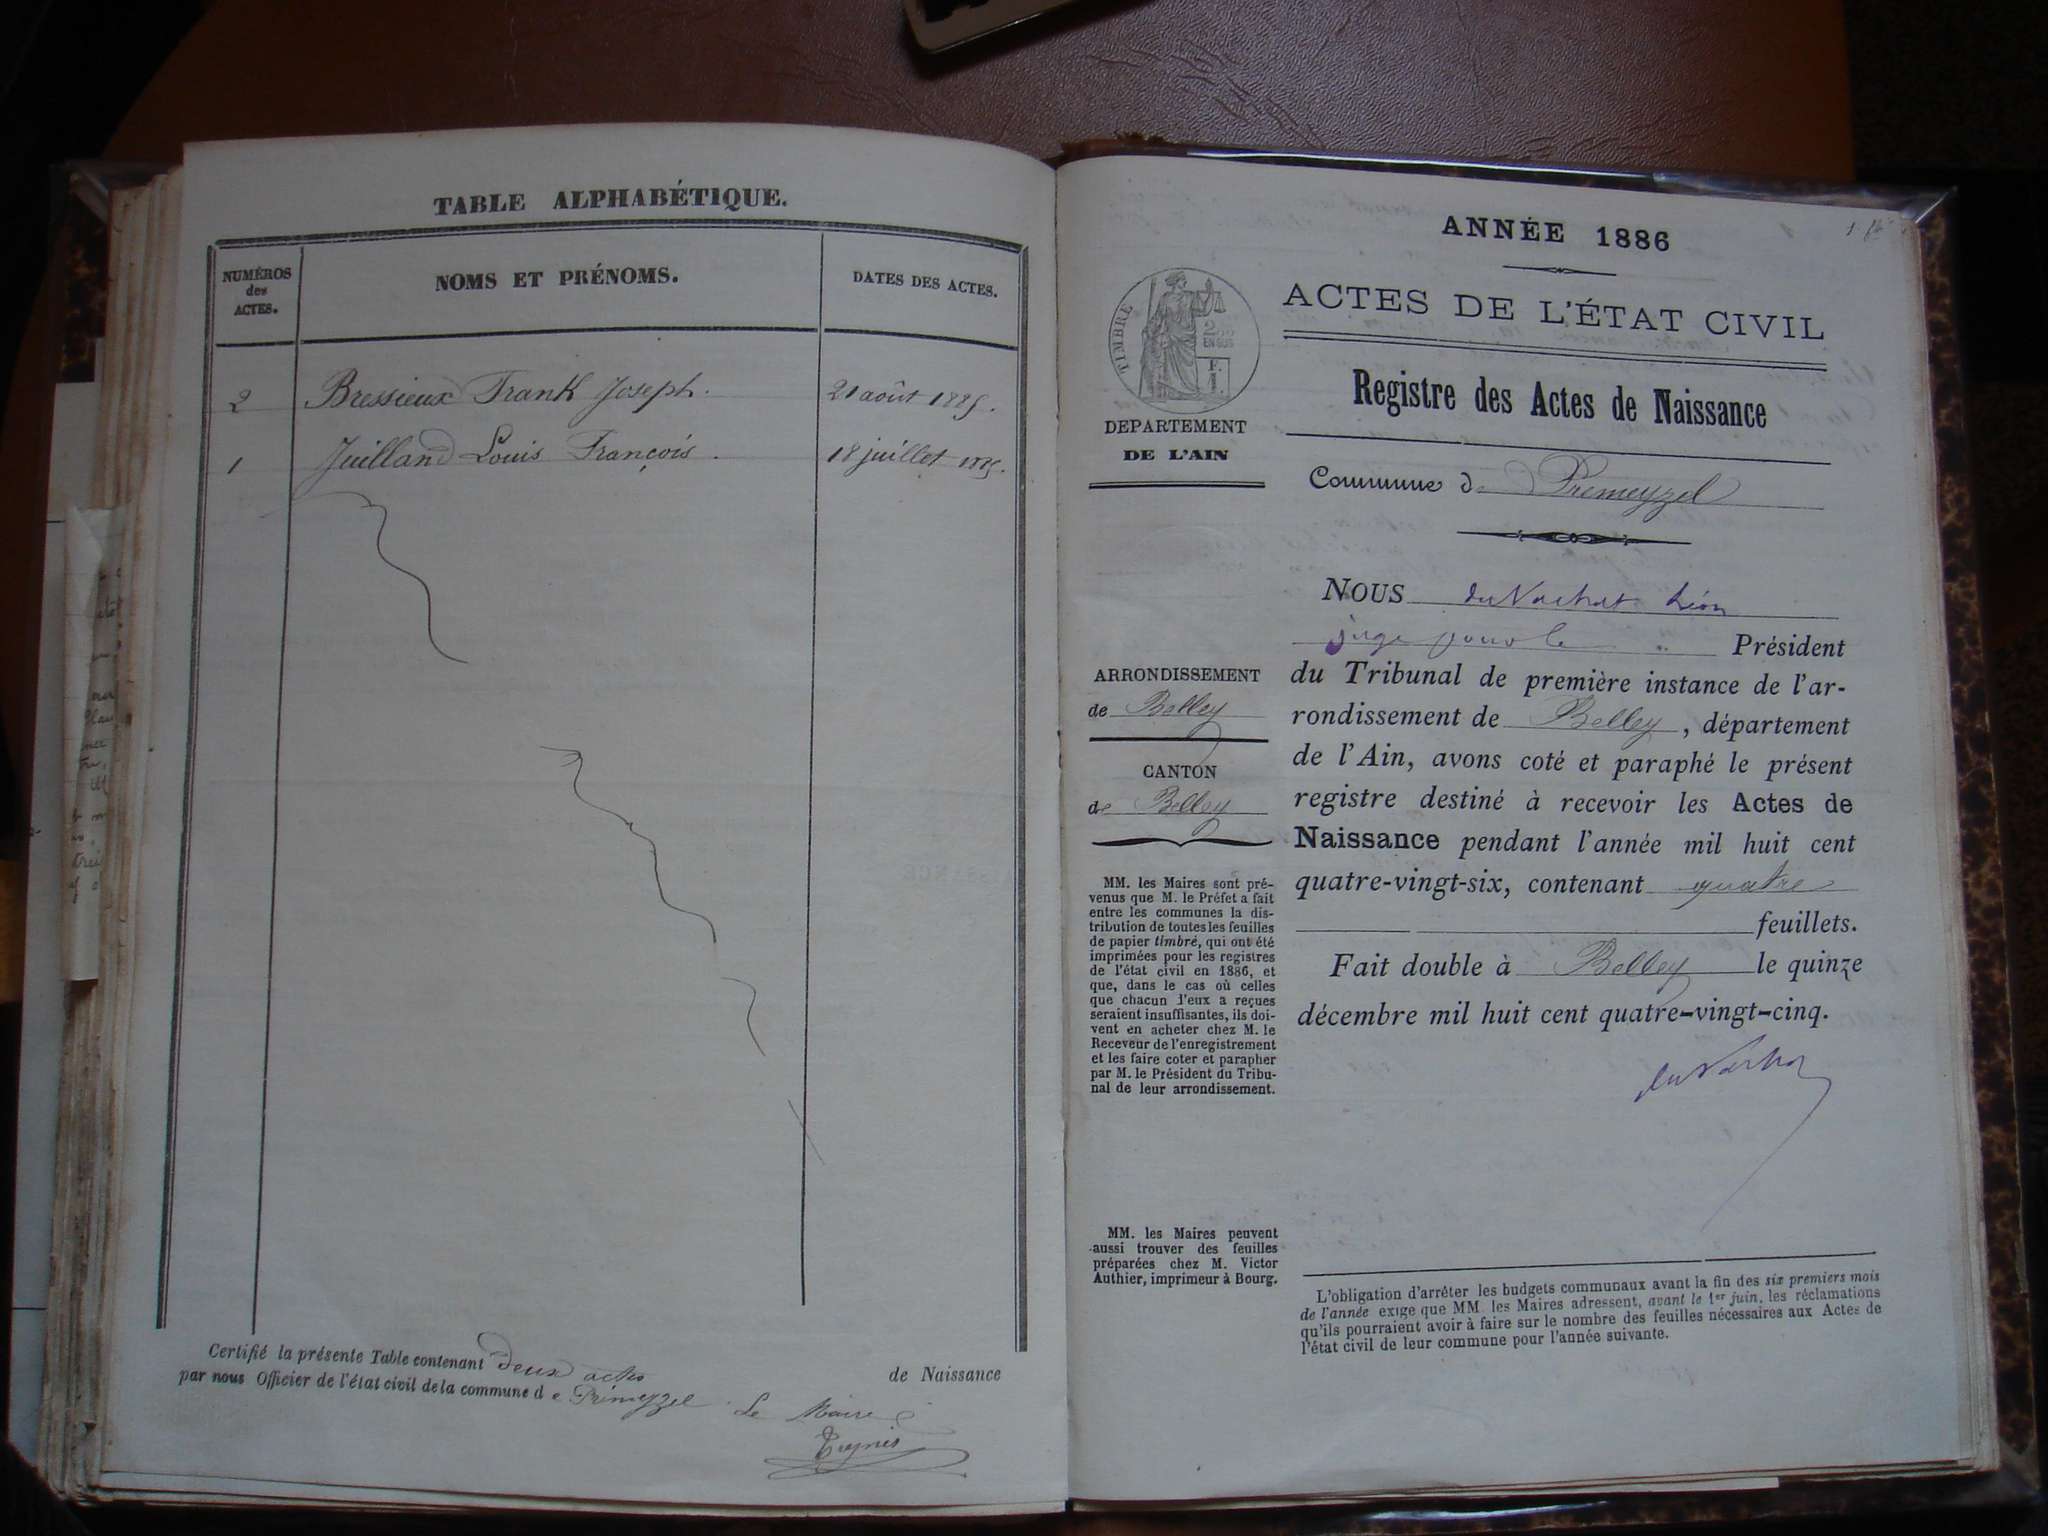 TABLE ALPHABÉTIQUE.
NUMÉROS
des
ACTES.
NOMS ET PRÉNOMS.
DATES DES ACTES.
2 Bressieux Frank Joseph. 21 août 1885.
1 Juilland Louis François. 18 juillet 1885.
Certifié la présente Table contenant deux actes de Naissance
par nous Officier de l'état civil de la commune d e Prémeyzel Le Maire
ANNÉE 1886
ACTES DE L'ÉTAT CIVIL
Registre des Actes de Naissance
Commune de Premeyzel
TIMBRE
2
EN SUS
F.
1.
DEPARTEMENT
DE L'AIN
ARRONDISSEMENT
de Belley
CANTON
de Belley
MM. les Maires sont pré-
venus que M. le Préfet a fait
entre les communes la dis-
tribution de toutes les feuilles
de papier timbré, qui ont été
imprimées pour les registres
de l'état civil en 1886, et
que, dans le cas où celles
que chacun d'eux a reçues
seraient insuffisantes, ils doi-
vent en acheter chez M. le
Receveur de l'enregistrement
et les faire coter et parapher
par M. le Président du Tribu-
nal de leur arrondissement.
MM. les Maires peuvent
aussi trouver des feuilles
préparées chez M. Victor
Authier, imprimeur à Bourg.
NOUS du Vachat Léon
juge pour le Président
du Tribunal de première instance de l'ar-
rondissement de Belley, département
de l'Ain, avons coté et paraphé le présent
registre destiné à recevoir les Actes de
Naissance pendant l'année mil huit cent
quatre-vingt-six, contenant quatre
feuillets.
Fait double à Belley le quinze
décembre mil huit cent quatre-vingt-cinq.
du Vachat
L'obligation d'arrêter les budgets communaux avant la fin des six premiers mois
de l'année exige que MM. les Maires adressent, avant le 1er juin, les réclamations
qu'ils pourraient avoir à faire sur le nombre des feuilles nécessaires aux Actes de
l'état civil de leur commune pour l'année suivante.